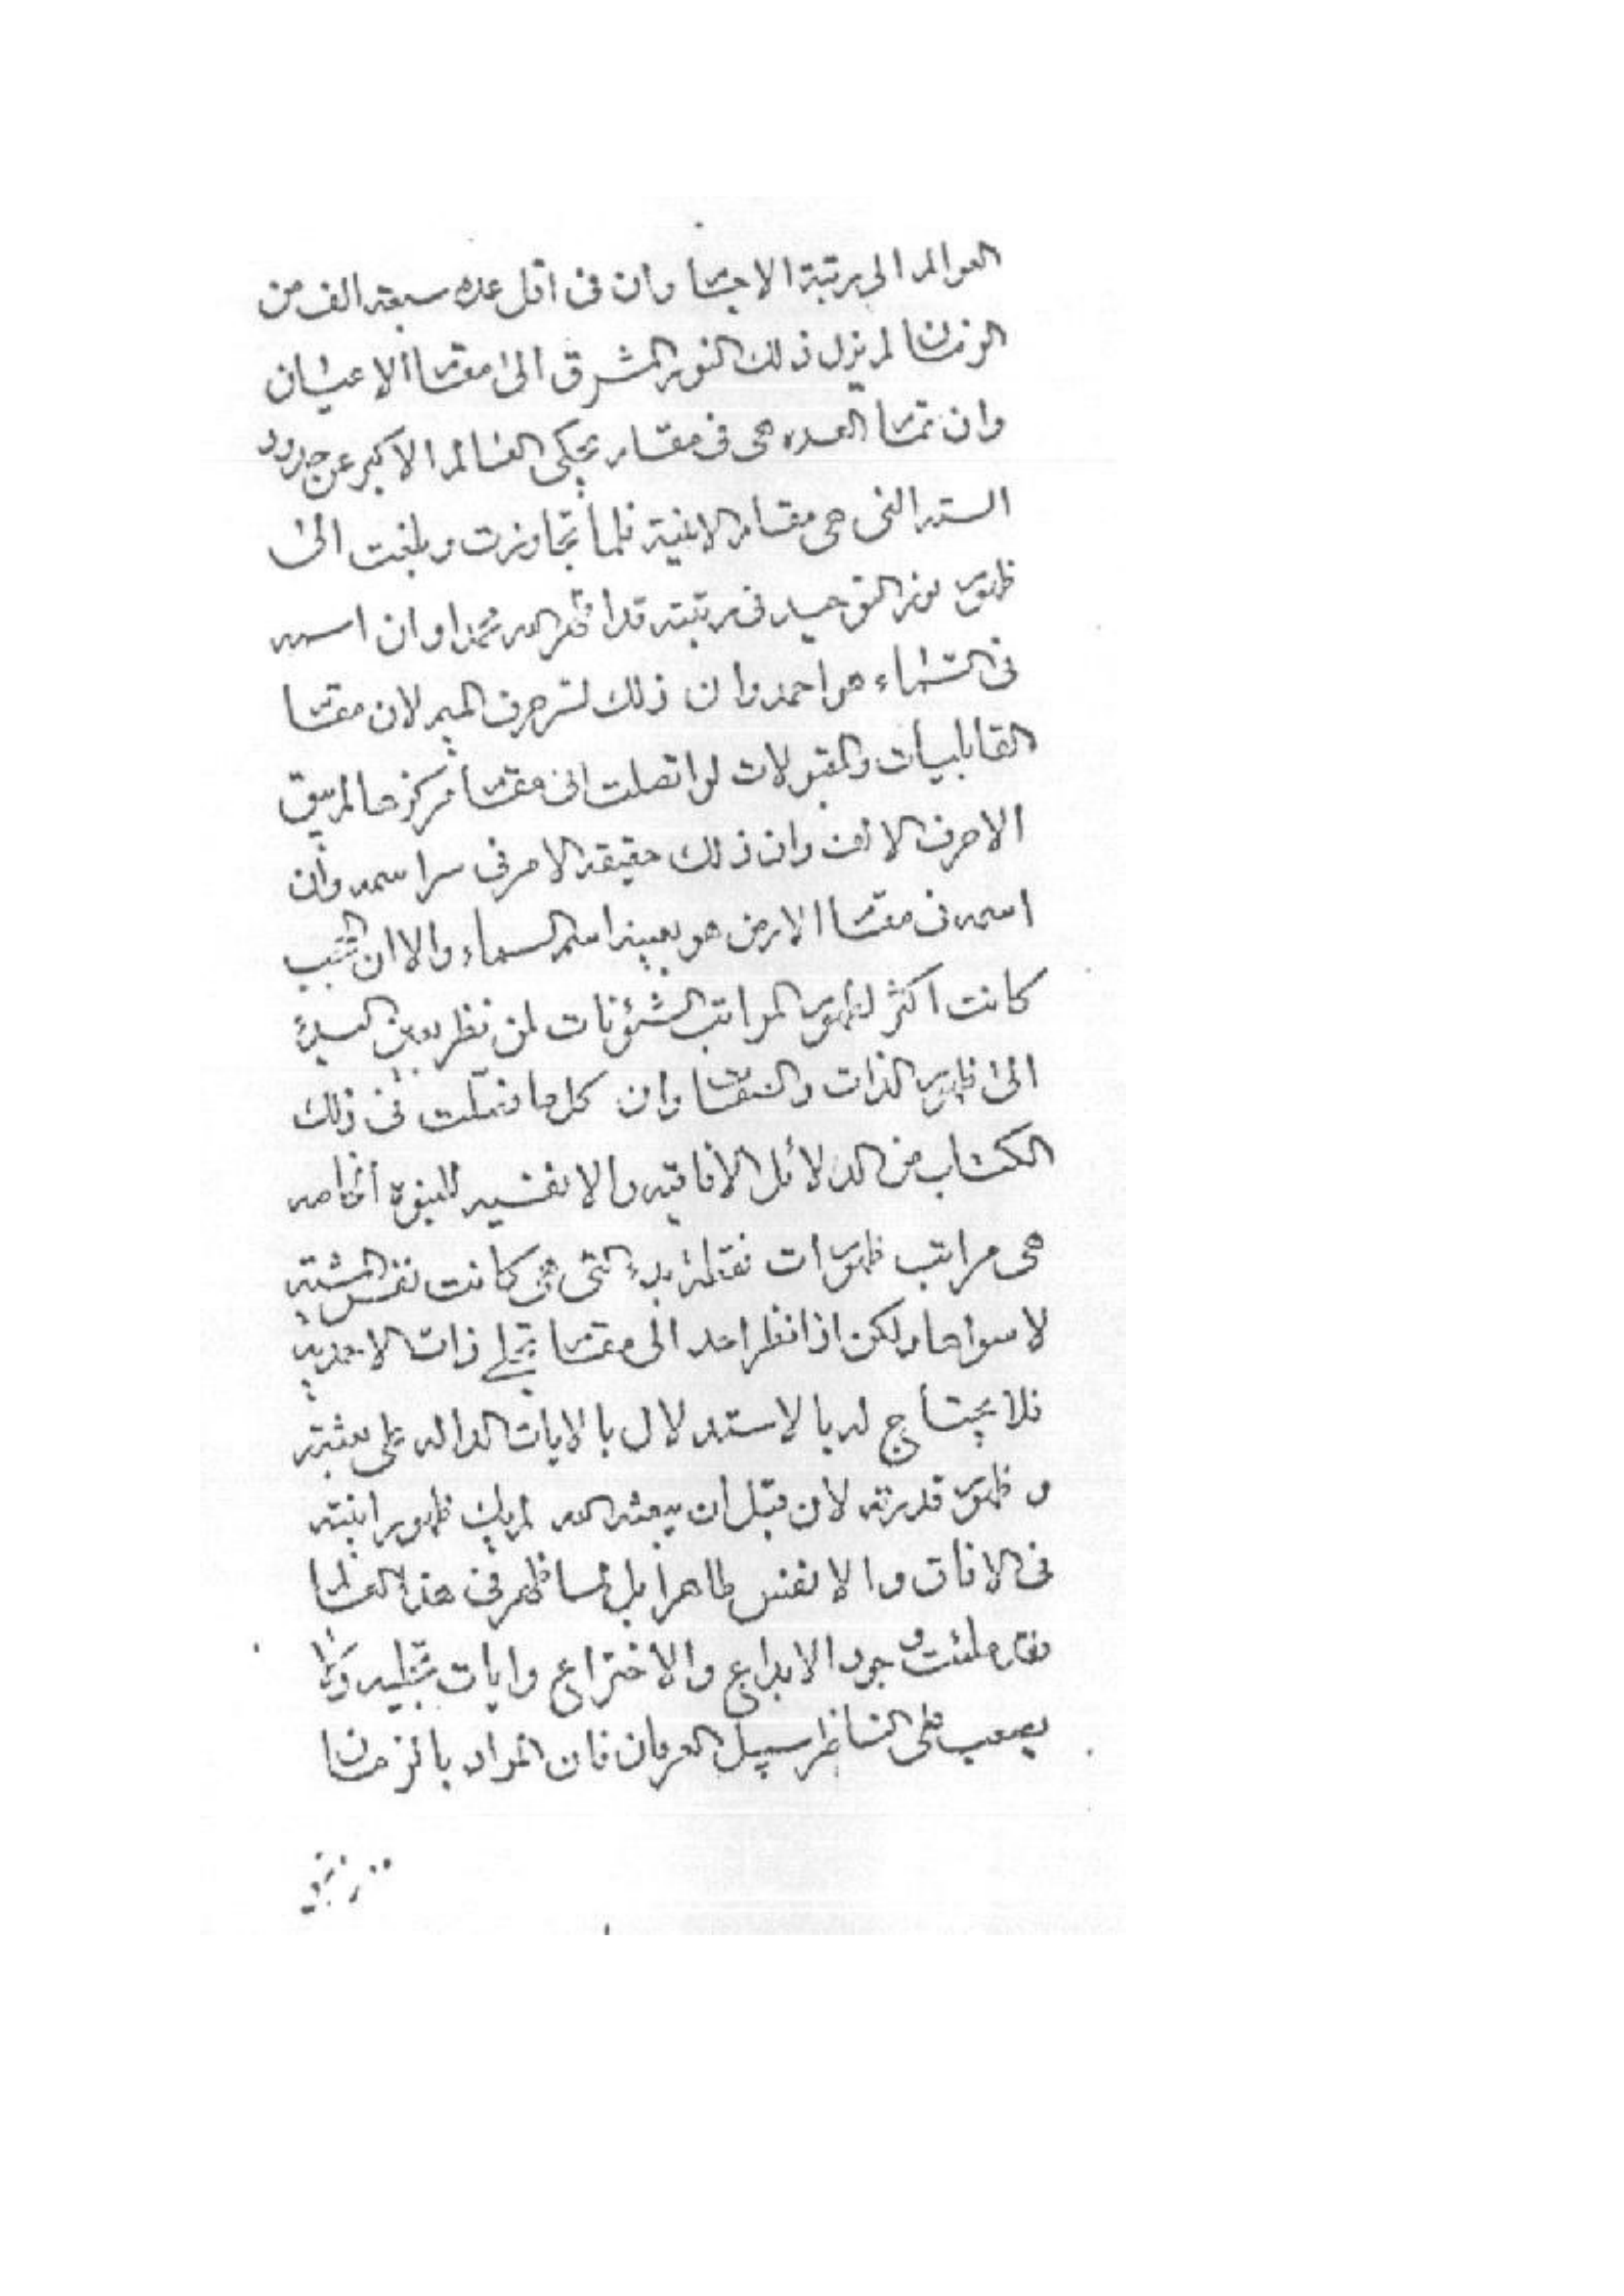 العوالم الى مرتبة الاجسام وان فى اقل عده سبعه الف من
الزمان لم ينزل ذلك النور المشرق الى مقام الاعيان
وان تمام العده هى فى مقام يحكى العالم الاكبر عن حدود
السته التى هى مقام الانية فلما تجاوزت و بلغت الى
ظهور نور التوحيد فى مرتبته قد اظهر الله محمدا وان اسمه
فى السماء هو احمد وان ذلك لسر حرف الميم لان مقام
القابليات والمقبولات لو اتصلت الى مقام مركزها لم يبق
الا حرف الالف وان ذلك حقيقة الامر فى سر اسمه وان
اسمه فى مقام الارض هو بعينه اسم السماء والا ان
كانت اكثر لظهور المراتب الشئونات لمن نظر بعين البدء
الى ظهور الذات والصفات وان كل ما فصلت فى ذلك
الكتاب من الدلائل الافاقيه والانفسيه للنبوة الخاصه
هى مراتب ظهورات نقطة بدء التى هى كانت نفس المشيته
لا سواها ولكن اذا نظر احد الى مقام تجلى ذات الاحديه
فلا يحتاج له بالاستدلال بالايات الداله على بعثته
و ظهور قدرته لان قبل ان يبعثه الله لم يك ظهور انيته
فى الافاق والانفس ظاهرا بل لما ظهر فى هذا العالم
فقد ملئت وجود الابداع والاختراع وايات تجليه ولما
يصعب على الناظر سبيل العرفان فان المراد بالزمان